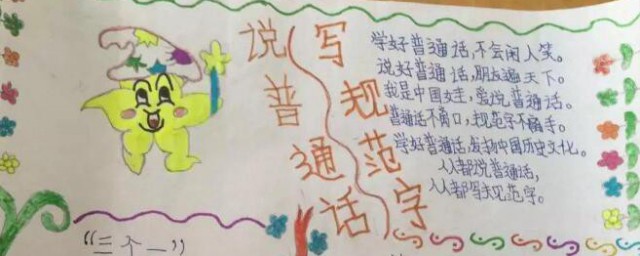 说普通话
写规范字
学好普通话,不会闲人笑。
说好普通话,朋友遍天下。
我是中国娃,爱说普通话。
普通话不离口,规范字不离手。
学好普通话,发扬中国历史文化。
人人都说普通话,
人人都写规范字。
“三个一”